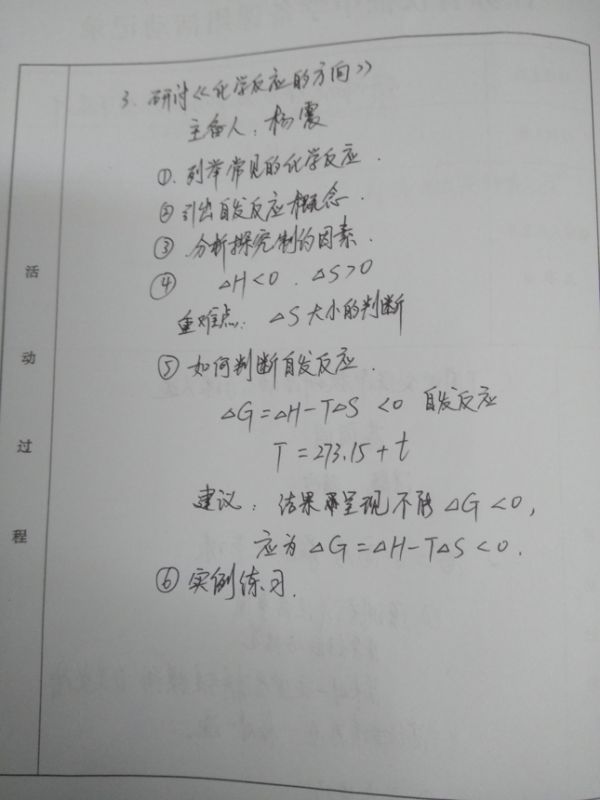 活动过程
3. 研讨《化学反应的方向》
主备人：杨震
①. 列举常见的化学反应.
② 引出自发反应概念.
③ 分析探究制约因素.
④ △H<0. △S>0
重难点：△S大小的判断
⑤ 如何判断自发反应.
△G=△H-T△S <0 自发反应
T=273.15+t
建议：结果呈现不能△G<0,
应为△G=△H-T△S<0.
⑥ 实例练习.